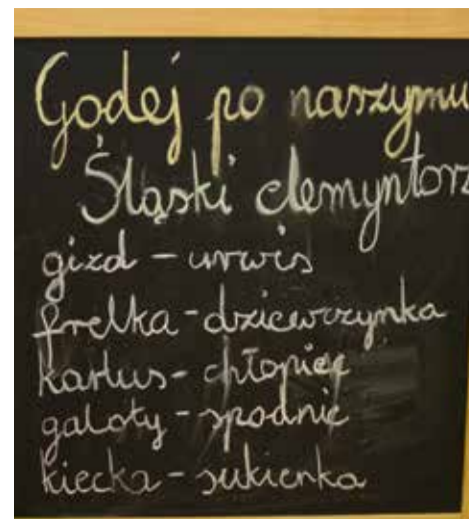 Godej po naszymu
Śląski elemyntorz
gizd – urwis
frelka – dziewczynka
karlus – chłopiec
galoty – spodnie
kiecka – sukienka